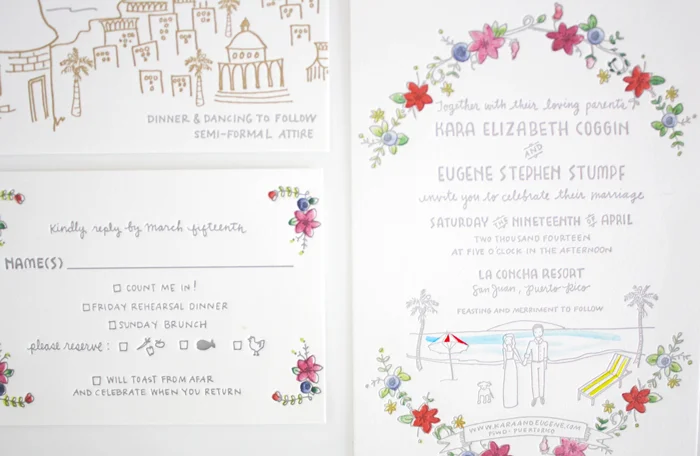 DINNER & DANCING TO FOLLOW
SEMI-FORMAL ATTIRE
Kindly reply by March fifteenth
NAME(S)
COUNT ME IN!
FRIDAY REHEARSAL DINNER
SUNDAY BRUNCH
please reserve:
WILL TOAST FROM AFAR
AND CELEBRATE WHEN YOU RETURN
Together with their loving parents
KARA ELIZABETH COGGIN
AND
EUGENE STEPHEN STUMPF
invite you to celebrate their marriage
SATURDAY THE NINETEENTH OF APRIL
TWO THOUSAND FOURTEEN
AT FIVE O'CLOCK IN THE AFTERNOON
LA CONCHA RESORT
San Juan, Puerto Rico
FEASTING AND MERRIMENT TO FOLLOW
WWW.KARAANDEUGENE.COM